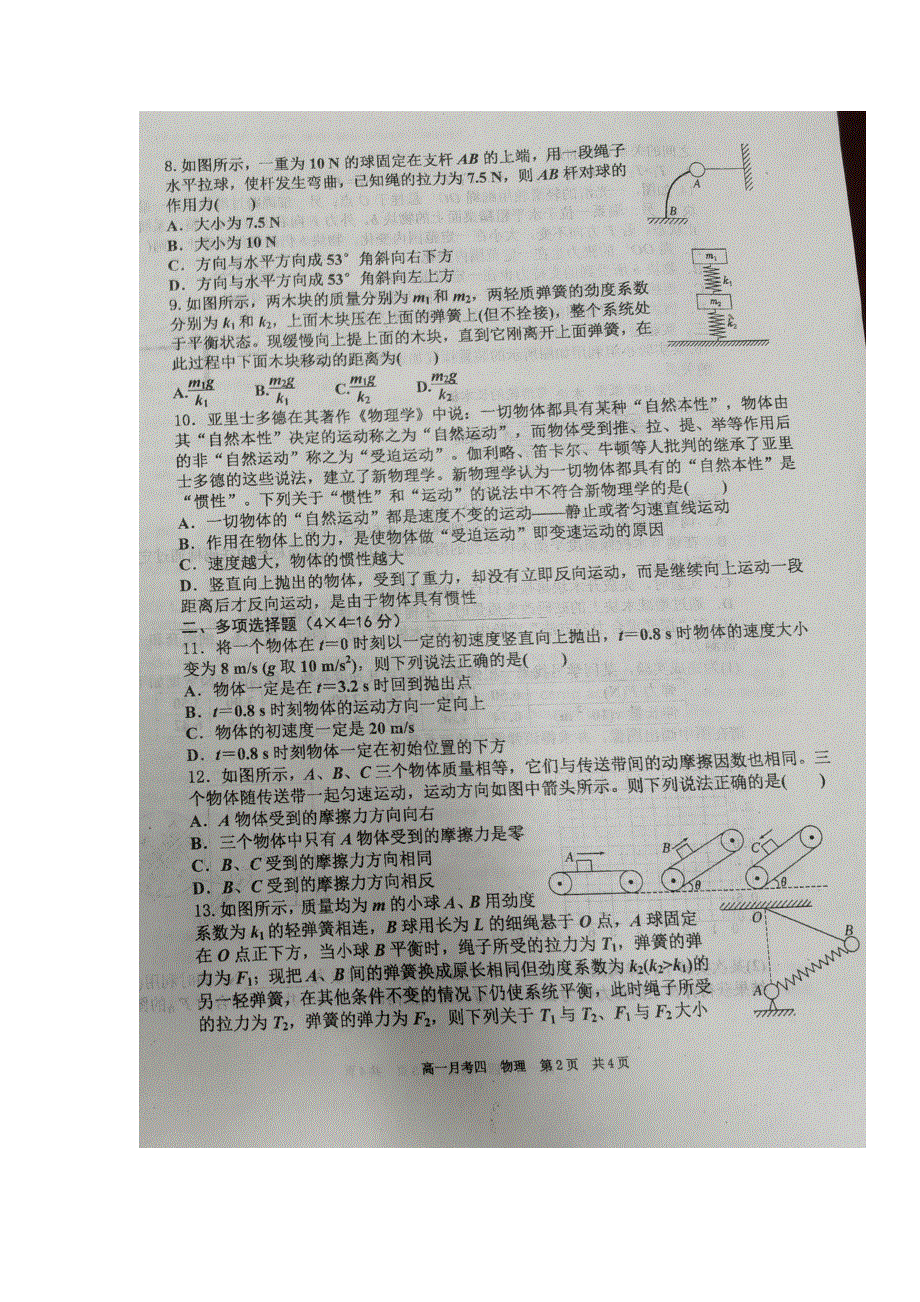 8.如图所示，一重为 10 N 的球固定在支杆 AB 的上端，用一段绳子
水平拉球，使杆发生弯曲，已知绳的拉力为 7.5 N，则 AB 杆对球的
作用力(
A．大小为 7.5 N
B．大小为 10 N
C．方向与水平方向成 53°角斜向右下方
D．方向与水平方向成 53°角斜向左上方
A
B
9.如图所示，两木块的质量分别为 m1 和 m2，两轻质弹簧的劲度系数
分别为 k1 和 k2，上面木块压在上面的弹簧上(但不拴接)，整个系统处
于平衡状态。现缓慢向上提上面的木块，直到它刚离开上面弹簧，在
此过程中下面木块移动的距离为( )
m1
k1
m2
k2
A.m1g/k1 B.m2g/k1 C.m1g/k2 D.m2g/k2
10．亚里士多德在其著作《物理学》中说：一切物体都具有某种“自然本性”，物体由
其“自然本性”决定的运动称之为“自然运动”，而物体受到推、拉、提、举等作用后
的非“自然运动”称之为“受迫运动”。伽利略、笛卡尔、牛顿等人批判的继承了亚里
士多德的这些说法，建立了新物理学。新物理学认为一切物体都具有的“自然本性”是
“惯性”。下列关于“惯性”和“运动”的说法中不符合新物理学的是( )
A．一切物体的“自然运动”都是速度不变的运动——静止或者匀速直线运动
B．作用在物体上的力，是使物体做“受迫运动”即变速运动的原因
C．速度越大，物体的惯性越大
D．竖直向上抛出的物体，受到了重力，却没有立即反向运动，而是继续向上运动一段
距离后才反向运动，是由于物体具有惯性
二、多项选择题（4×4=16 分）
11．将一个物体在 t=0 时刻以一定的初速度竖直向上抛出，t=0.8 s 时物体的速度大小
变为 8 m/s (g 取 10 m/s²)，则下列说法正确的是( )
A．物体一定是在 t=3.2 s 时回到抛出点
B．t=0.8 s 时刻物体的运动方向一定向上
C．物体的初速度一定是 20 m/s
D．t=0.8 s 时刻物体一定在初始位置的下方
12．如图所示，A、B、C 三个物体质量相等，它们与传送带间的动摩擦因数也相同。三
个物体随传送带一起匀速运动，运动方向如图中箭头所示。则下列说法正确的是( )
A．A 物体受到的摩擦力方向向右
B．三个物体中只有 A 物体受到的摩擦力是零
C．B、C 受到的摩擦力方向相同
D．B、C 受到的摩擦力方向相反
A
B
θ
C
θ
13.如图所示，质量均为 m 的小球 A、B 用劲度
系数为 k1 的轻弹簧相连，B 球用长为 L 的细绳悬于 O 点，A 球固定
在 O 点正下方，当小球 B 平衡时，绳子所受的拉力为 T1，弹簧的弹
力为 F1；现把 A、B 间的弹簧换成原长相同但劲度系数为 k2(k2>k1)的
另一轻弹簧，在其他条件不变的情况下仍使系统平衡，此时绳子所受
的拉力为 T2，弹簧的弹力为 F2，则下列关于 T1 与 T2、F1 与 F2 大小
O
B
A
高一月考四 物理 第 2 页 共 4 页